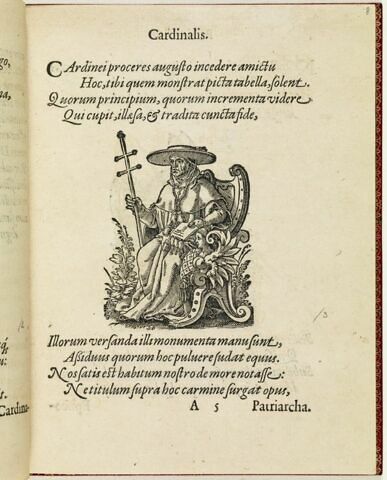 Cardinalis.
CArdinei proceres augusto incedere amictu
Hoc, tibi quem monstrat picta tabella, solent.
Quorum principium, quorum incrementa videre
Qui cupit, illæsa, & tradita cuncta fide,
Illorum versanda illi monumenta manu sunt,
Aßiduus quorum hoc puluere sudat equus.
Nos satis est habitum nostro de more notasse:
Ne titulum supra hoc carmine surgat opus,
A 5 Patriarcha.